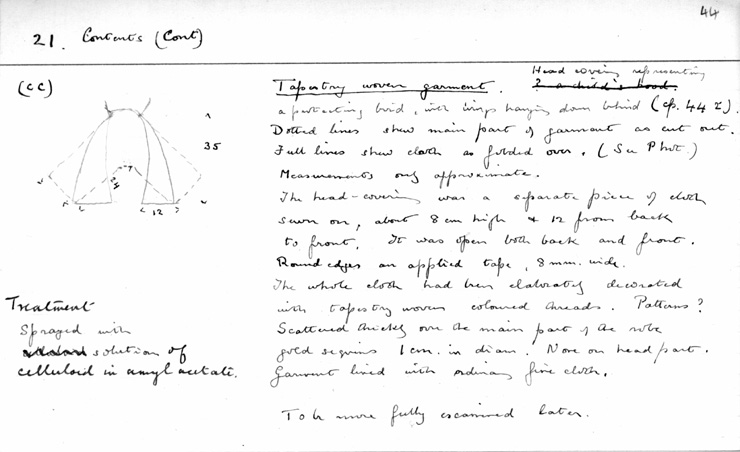 44
21. Contents (Cont)
(cc)
35
24
12
Tapestry woven garment. Head covering representing
? a child's hood.
a protecting bird, with wings hanging down behind (cp. 44 z).
Dotted lines shew main part of garment as cut out.
Full lines shew cloth as folded over. (See Phot.)
Measurements only approximate.
The head-covering was a separate piece of cloth
sewn on, about 8 cm high & 12 from back
to front. It was open both back and front.
Round edges an applied tape, 8 mm. wide.
The whole cloth had been elaborately decorated
with tapestry woven coloured threads. Patterns?
Scattered thickly over the main part of the robe
gold sequins 1 cm. in diam. None on head part.
Garment lined with ordinary fine cloth.
To be more fully examined later.
Treatment
Sprayed with
solution of
celluloid in amyl acetate.